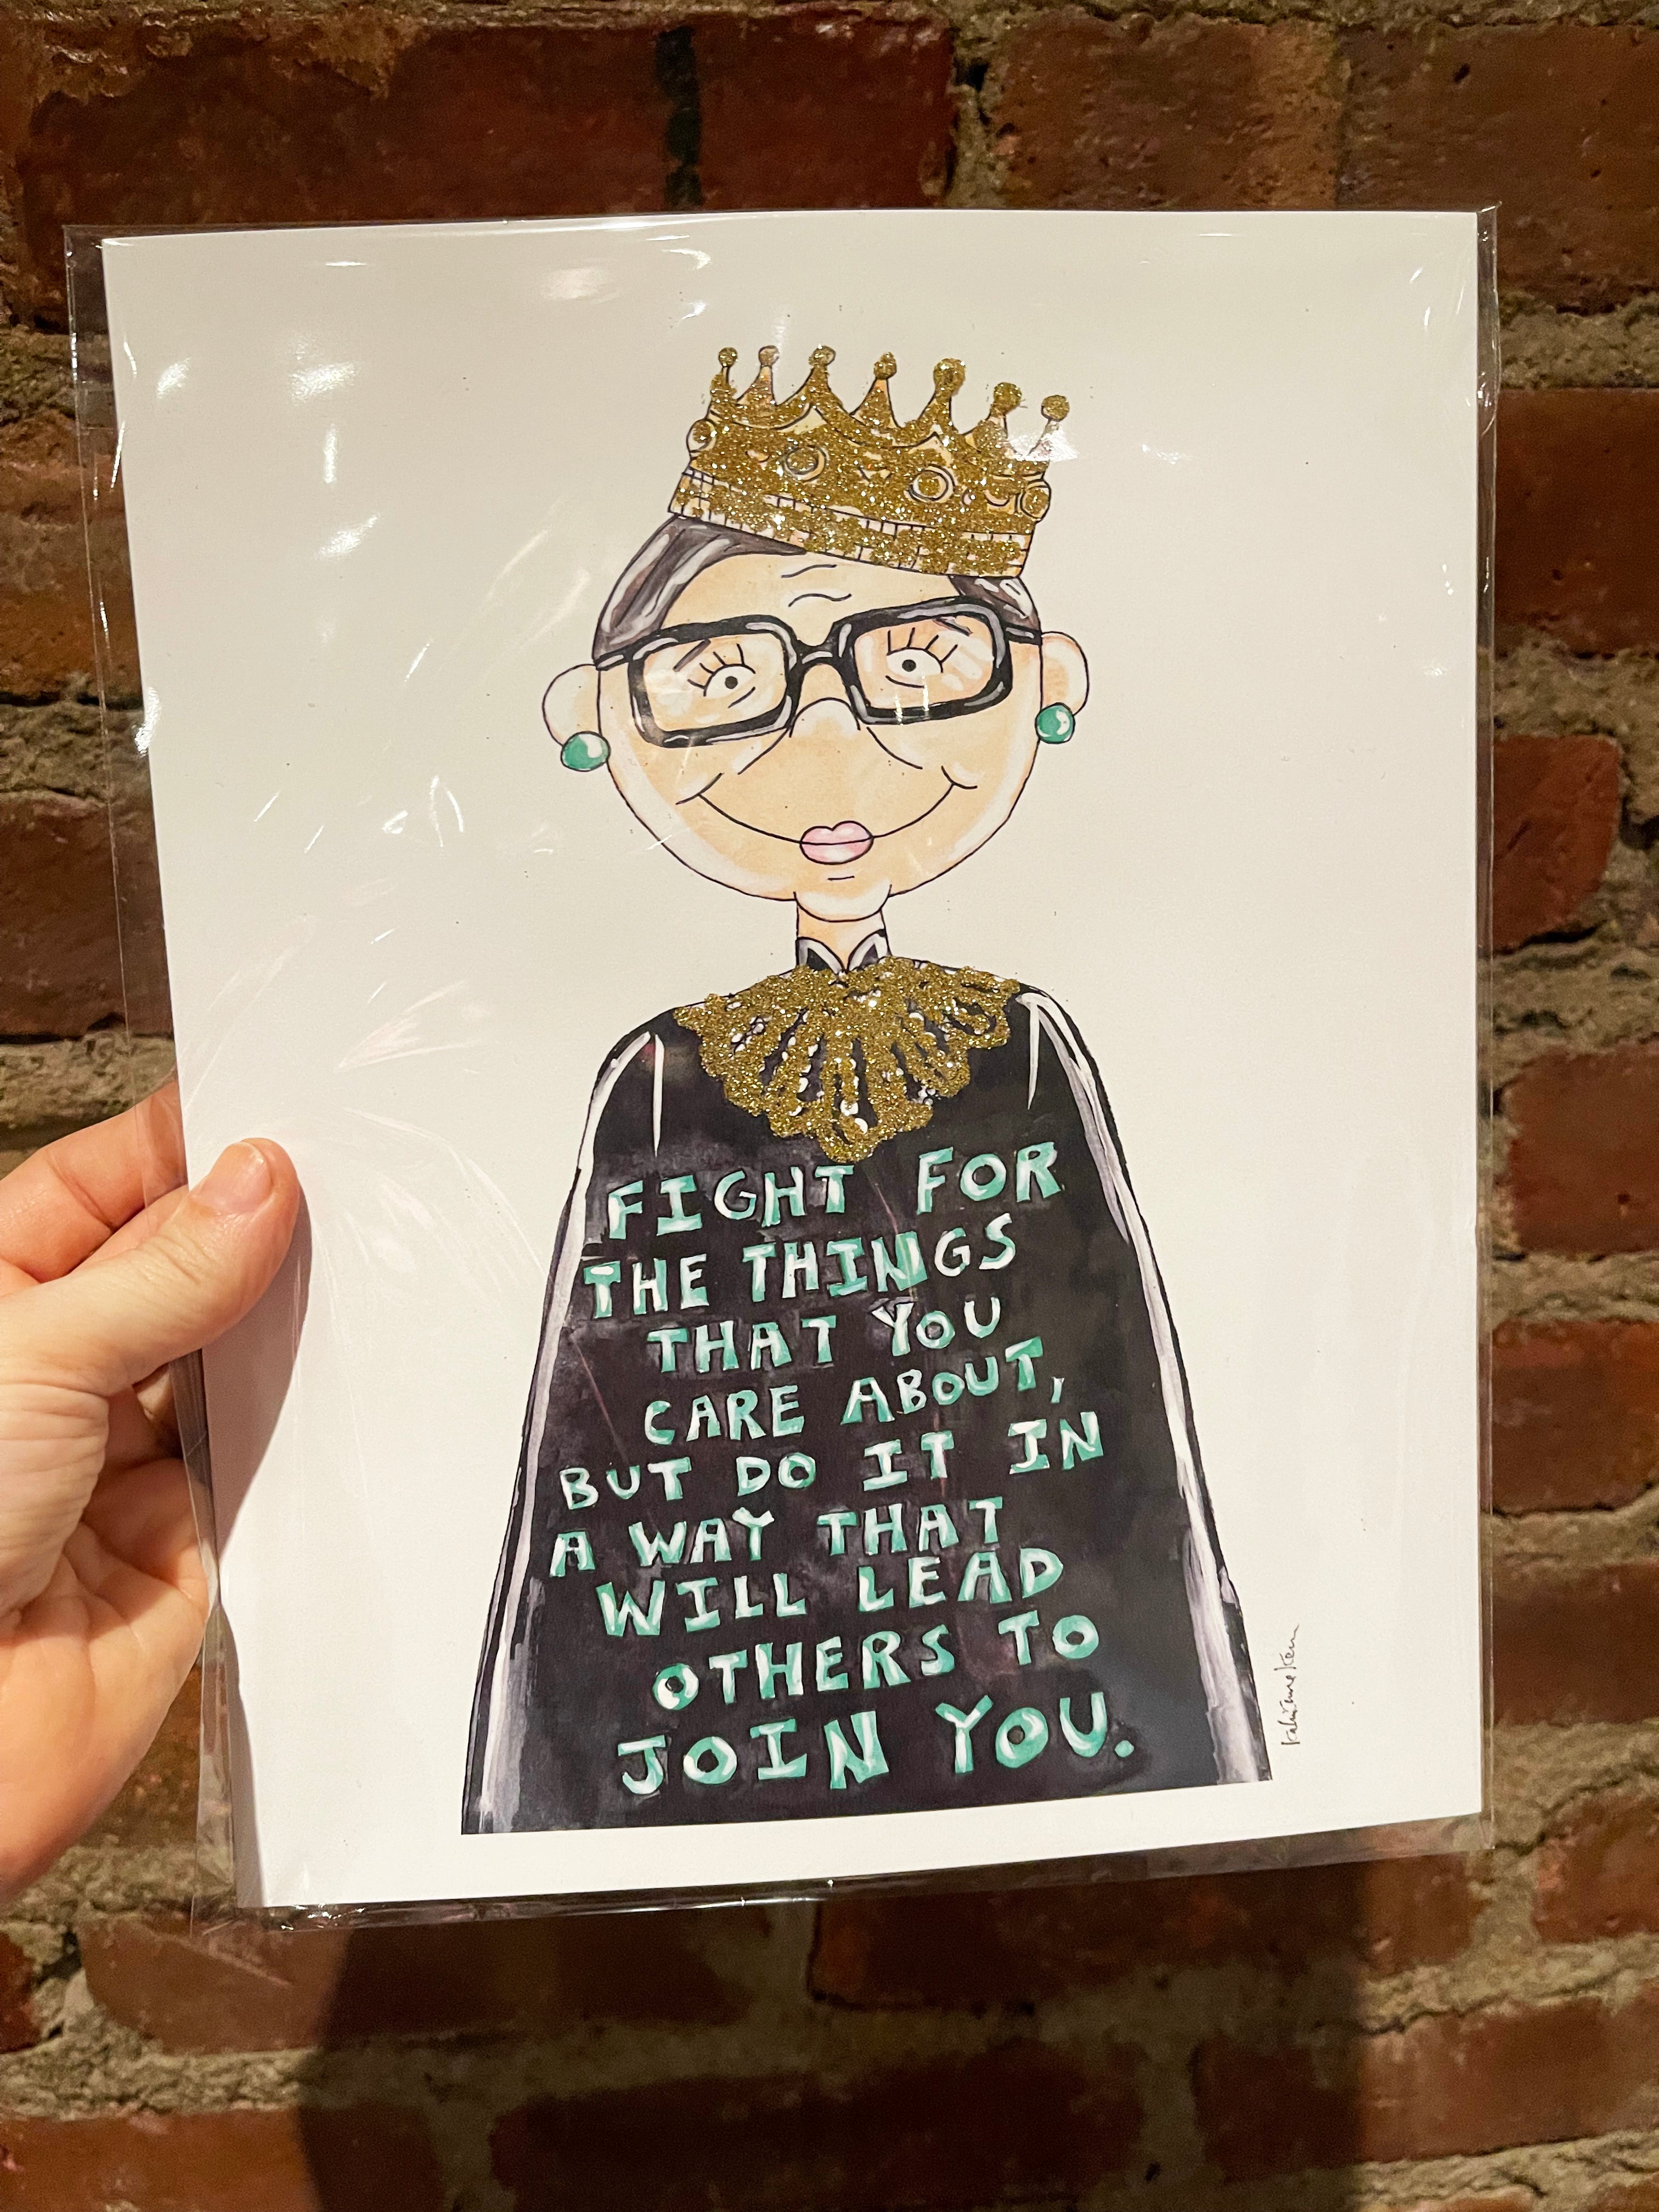 FIGHT FOR
THE THINGS
THAT YOU
CARE ABOUT,
BUT DO IT IN
A WAY THAT
WILL LEAD
OTHERS TO
JOIN YOU.